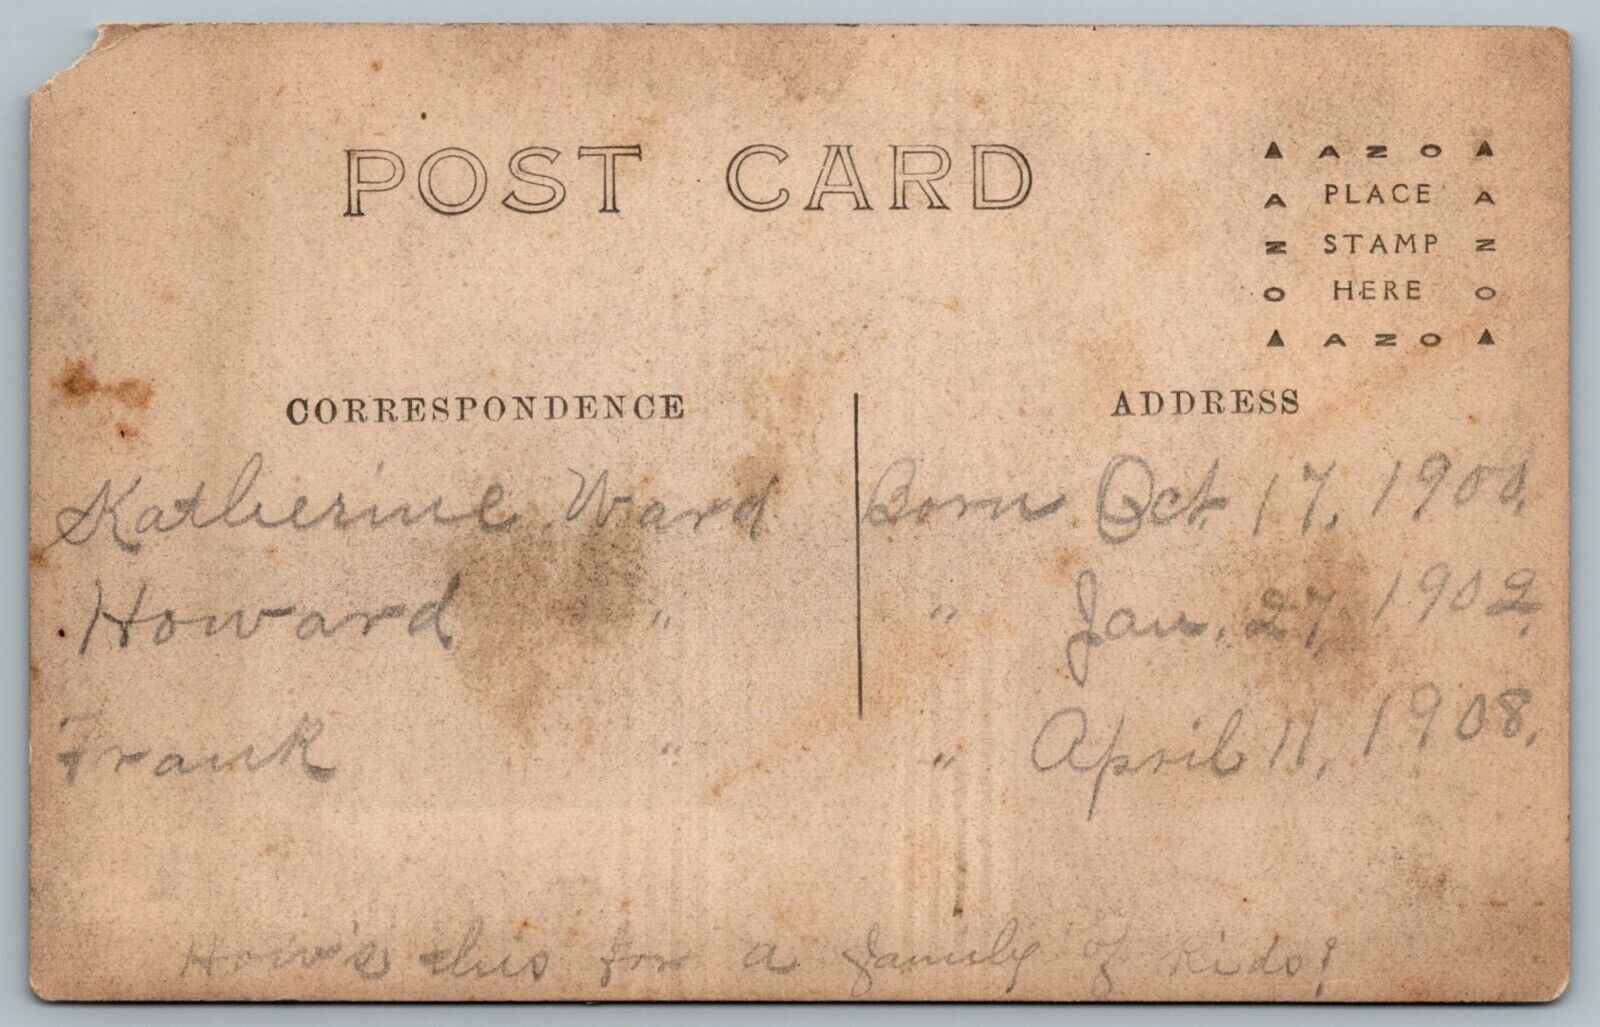 POST CARD
▲ AZO ▲
A PLACE A
Z STAMP Z
O HERE O
▲ AZO ▲
CORRESPONDENCE
ADDRESS
Katherine Ward Born Oct. 17, 1900.
Howard " " Jan. 27, 1902.
Frank " " April 11, 1908.
How's this for a family of kids!